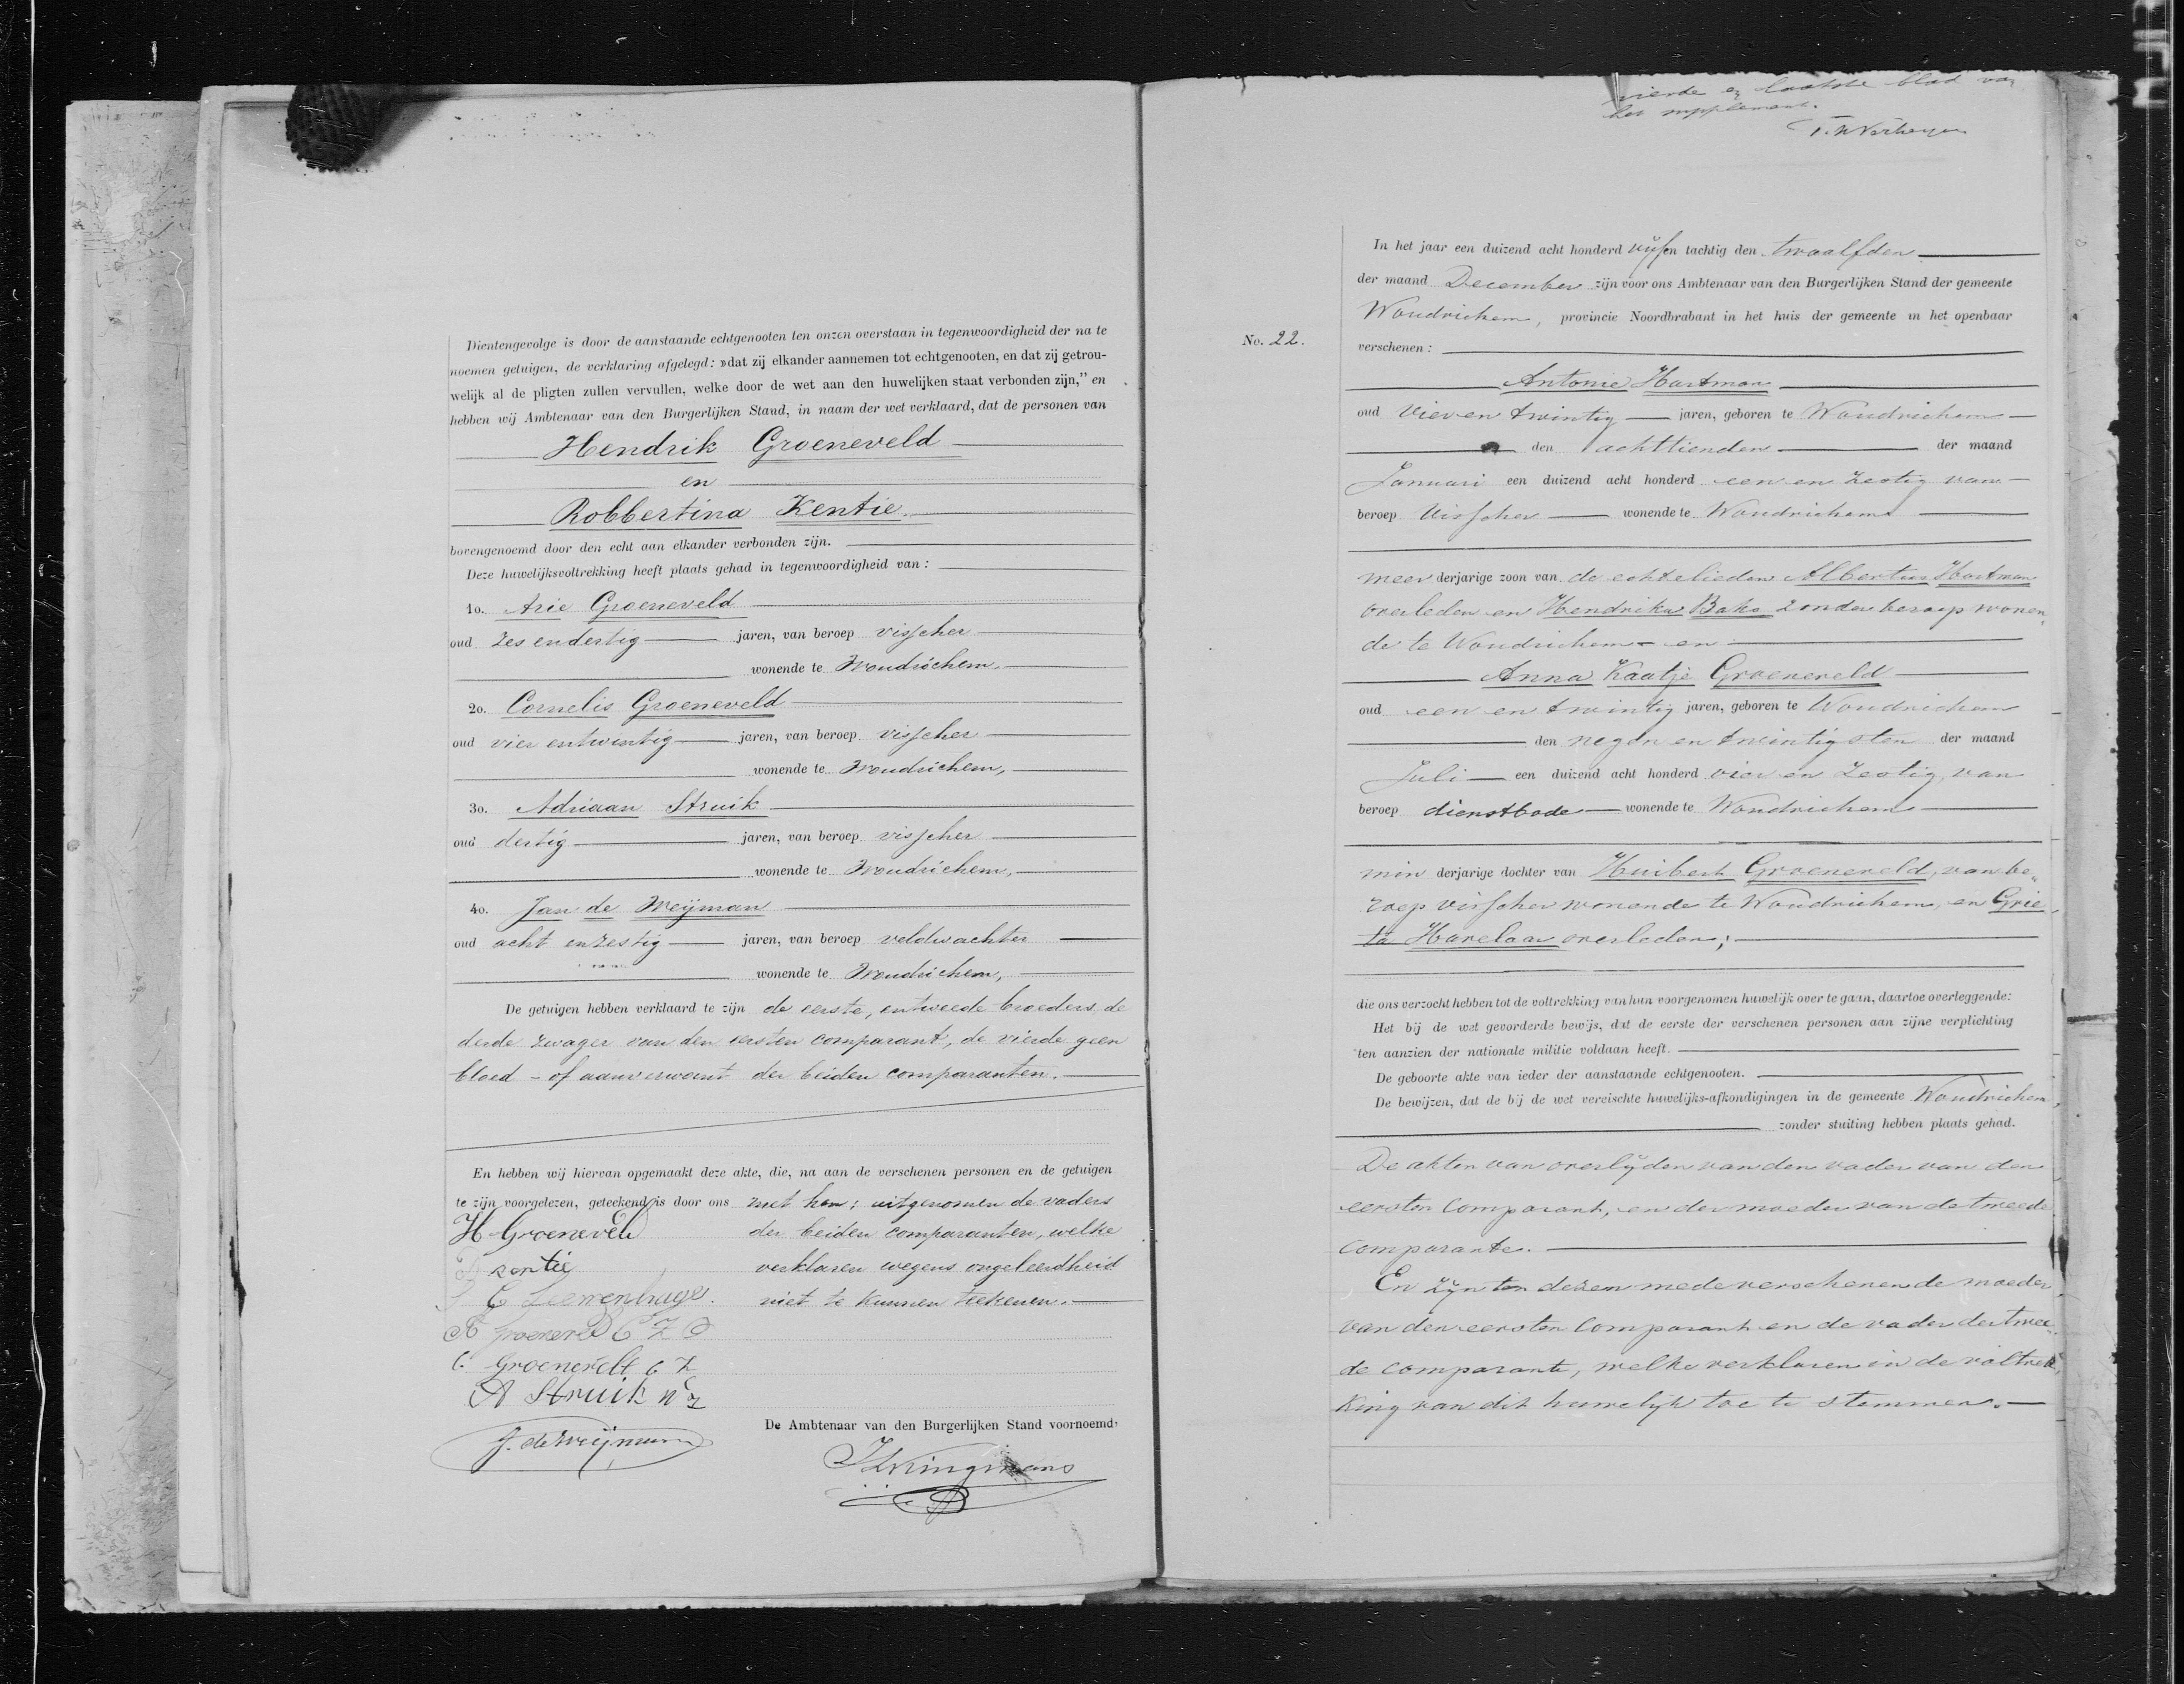 Dientengevolge is door de aanstaande echtgenooten ten onzen overstaan in tegenwoordigheid der na te
noemen getuigen, de verklaring afgelegd: »dat zij elkander aannemen tot echtgenooten, en dat zij getrou-
welijk al de pligten zullen vervullen, welke door de wet aan den huwelijken staat verbonden zijn,” en
hebben wij Ambtenaar van den Burgerlijken Stand, in naam der wet verklaard, dat de personen van
Hendrik Groeneveld
en
Robbertina Kentie.
bovengenoemd door den echt aan elkander verbonden zijn.
Deze huwelijksvoltrekking heeft plaats gehad in tegenwoordigheid van:
1o. Arie Groeneveld
oud zes endertig jaren, van beroep visscher
wonende te Woudrichem,
2o. Cornelis Groeneveld
oud vier entwintig jaren, van beroep visscher
wonende te Woudrichem,
3o. Adriaan Struik
oud dertig jaren, van beroep visscher
wonende te Woudrichem,
4o. Jan de Weijman
oud acht enzestig jaren, van beroep veldwachter
wonende te Woudrichem,
De getuigen hebben verklaard te zijn de eerste, entweede broeders, de
derde zwager van den eersten comparant, de vierde geen
bloed - of aanverwant der beiden comparanten.
En hebben wij hiervan opgemaakt deze akte, die, na aan de verschenen personen en de getuigen
te zijn voorgelezen, geteekend is door ons met hen; uitgenomen de vaders
der beiden comparanten, welke
verklaren wegens ongeleerdheid
niet te kunnen teekenen.
H Groeneveld
C Leeuwenhage
A Groeneveld C Z
C. Groenevelt C Z
A Struik
J. de Weijman
De Ambtenaar van den Burgerlijken Stand voornoemd,
vierde en laatste blad van
het supplement.
No. 22.
In het jaar een duizend acht honderd vijfen tachtig den twaalfden
der maand December zijn voor ons Ambtenaar van den Burgerlijken Stand der gemeente
Woudrichem, provincie Noordbrabant in het huis der gemeente in het openbaar
verschenen:
Antonie Hartman
oud vieren twintig jaren, geboren te Woudrichem
den achttienden der maand
Januari een duizend acht honderd een en zestig van
beroep Visscher wonende te Woudrichem
meer derjarige zoon van de echtelieden Albertus Hartman
overleden en Hendrika Bako zonder beroep wonen„
de te Woudrichem en
Anna Kaatje Groeneveld
oud een en twintig jaren, geboren te Woudrichem
den negen en twintigsten der maand
Juli een duizend acht honderd vier en zestig, van
beroep dienstbode wonende te Woudrichem
min derjarige dochter van Huibert Groeneveld, van be„
roep visscher wonende te Woudrichem, en Grie„
ta Havelaar overleden;
die ons verzocht hebben tot de voltrekking van hun voorgenomen huwelijk over te gaan, daartoe overleggende:
Het bij de wet gevorderde bewijs, dat de eerste der verschenen personen aan zijne verplichting
ten aanzien der nationale militie voldaan heeft.
De geboorte akte van ieder der aanstaande echtgenooten.
De bewijzen, dat de bij de wet vereischte huwelijks-afkondigingen in de gemeente Woudrichem,
zonder stuiting hebben plaats gehad.
De akten van overlijden van den vader van den
eersten Comparant, en der moeder van de tweede
Comparante.
En zijn ten dezen mede verschenen de moeder
van den eersten Comparant en de vader der twee„
de comparante, welke verklaren in de voltrek„
king van dit huwelijk toe te stemmen.